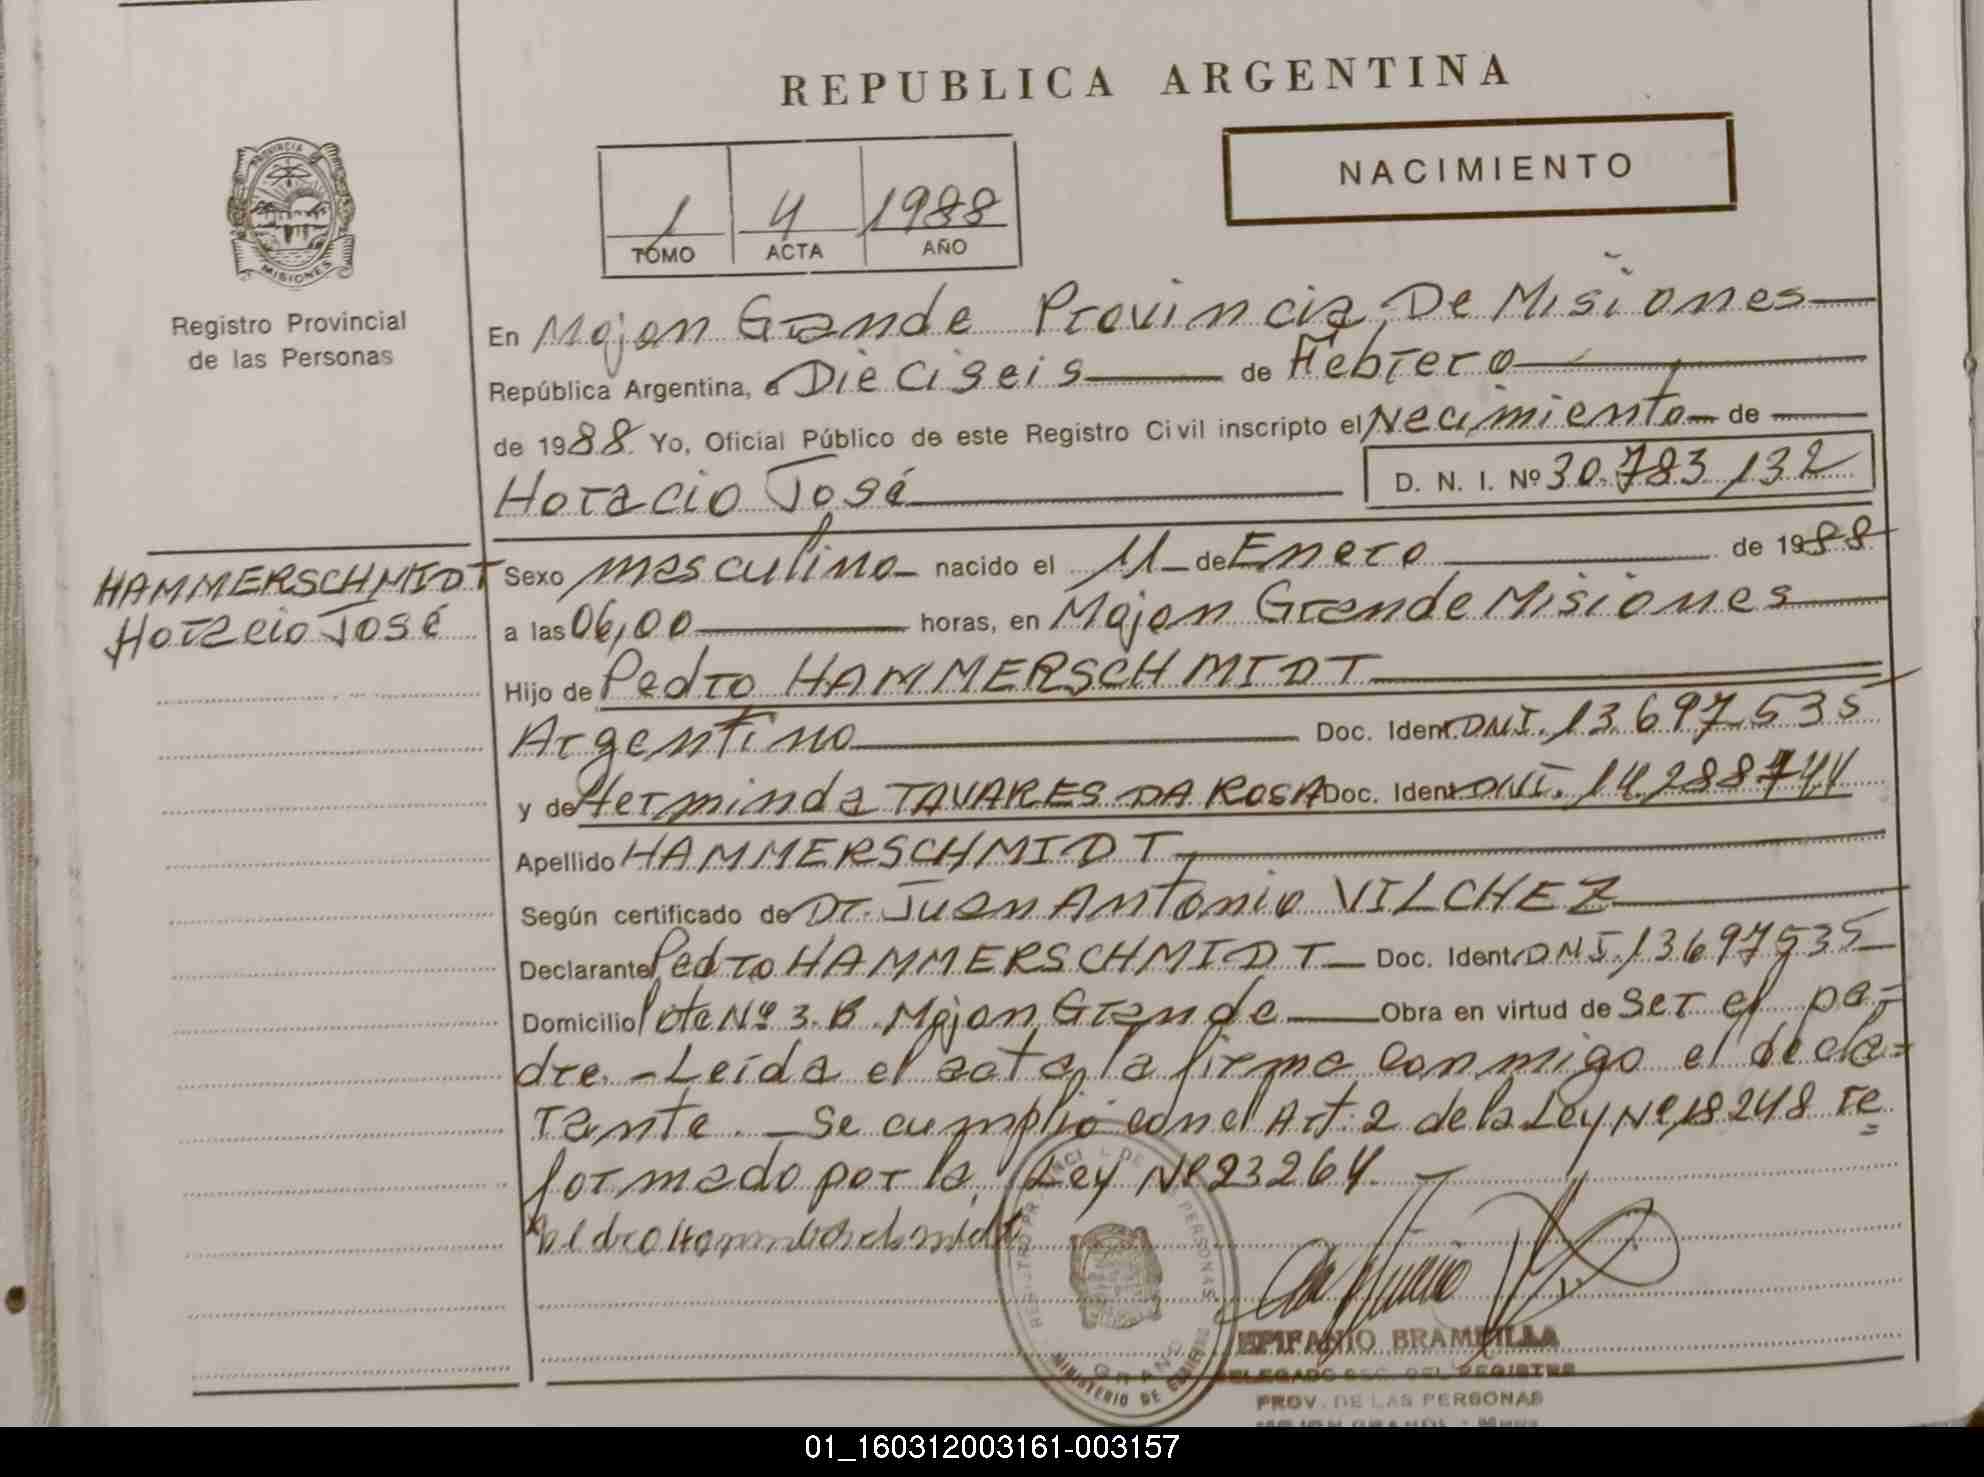 REPUBLICA ARGENTINA
NACIMIENTO
PROVINCIA
MISIONES
Registro Provincial
de las Personas
1 4 1988
TOMO ACTA AÑO
En Mojon Grande Provincia De Misiones
República Argentina, a Dieciseis de Febrero
de 1988. Yo, Oficial Público de este Registro Civil inscripto el Nacimiento de
Horacio José D. N. I. Nº 30.783.132
HAMMERSCHMIDT
Horacio José
Sexo masculino nacido el 11 de Enero de 1988
a las 06,00 horas, en Mojon Grande Misiones
Hijo de Pedro HAMMERSCHMIDT
Argentino Doc. Ident. DNI. 13.697.535
y de Herminda TAVARES DA ROSA Doc. Ident. DNI. 14.288744
Apellido HAMMERSCHMIDT
Según certificado de Dr. Juan Antonio VILCHEZ
Declarante Pedro HAMMERSCHMIDT Doc. Ident. DNI. 13697535
Domicilio lote Nº 3.B. Mojon Grande Obra en virtud de Ser el pa-
dre. - Leída el acta, la firma conmigo el decla=
rante. - Se cumplió con el Art. 2 de la Ley Nº 18248 re
=
formado por la Ley Nº 23264. -
EPIFANIO BRAMBILLA
DELEGADO SEC. DEL REGISTRO
PROV. DE LAS PERSONAS
MINISTERIO DE GOBIERNO
01_160312003161-003157